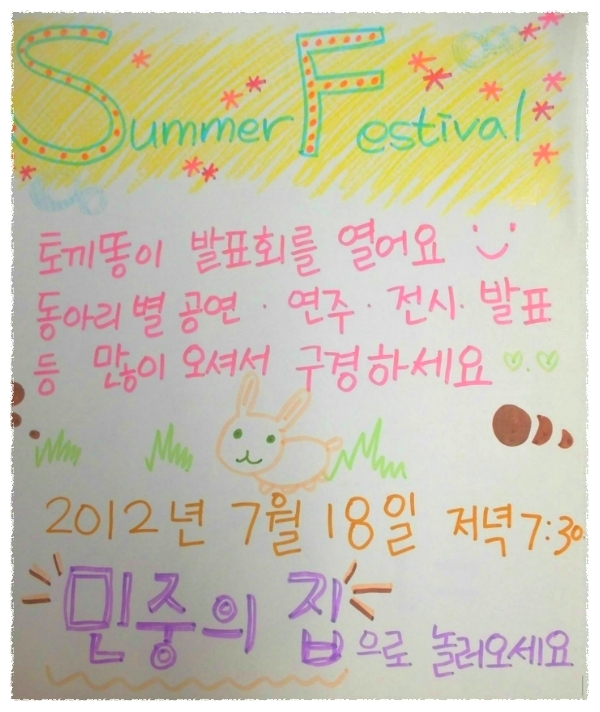 Summer Festival
토끼똥이 발표회를 열어요
동아리별 공연 · 연주 · 전시 · 발표
등 많이 오셔서 구경하세요
2012년 7월 18일 저녁 7:30
민중의 집으로 놀러오세요